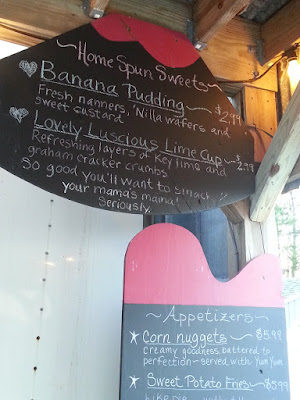 ~ Home Spun Sweets ~
Banana Pudding
Fresh nanners, 'Nilla wafers and ~ $2.99
sweet custard
Lovely Luscious Lime Cup ~ $2.99
Refreshing layers of key lime and
graham cracker crumbs
So good you'll want to smack
your mama's mama!
Seriously.
~ Appetizers ~
Corn nuggets ~ $5.99
creamy goodness battered to
perfection - served with Yum Yum
Sweet Potato Fries ~ $5.99
Like pie